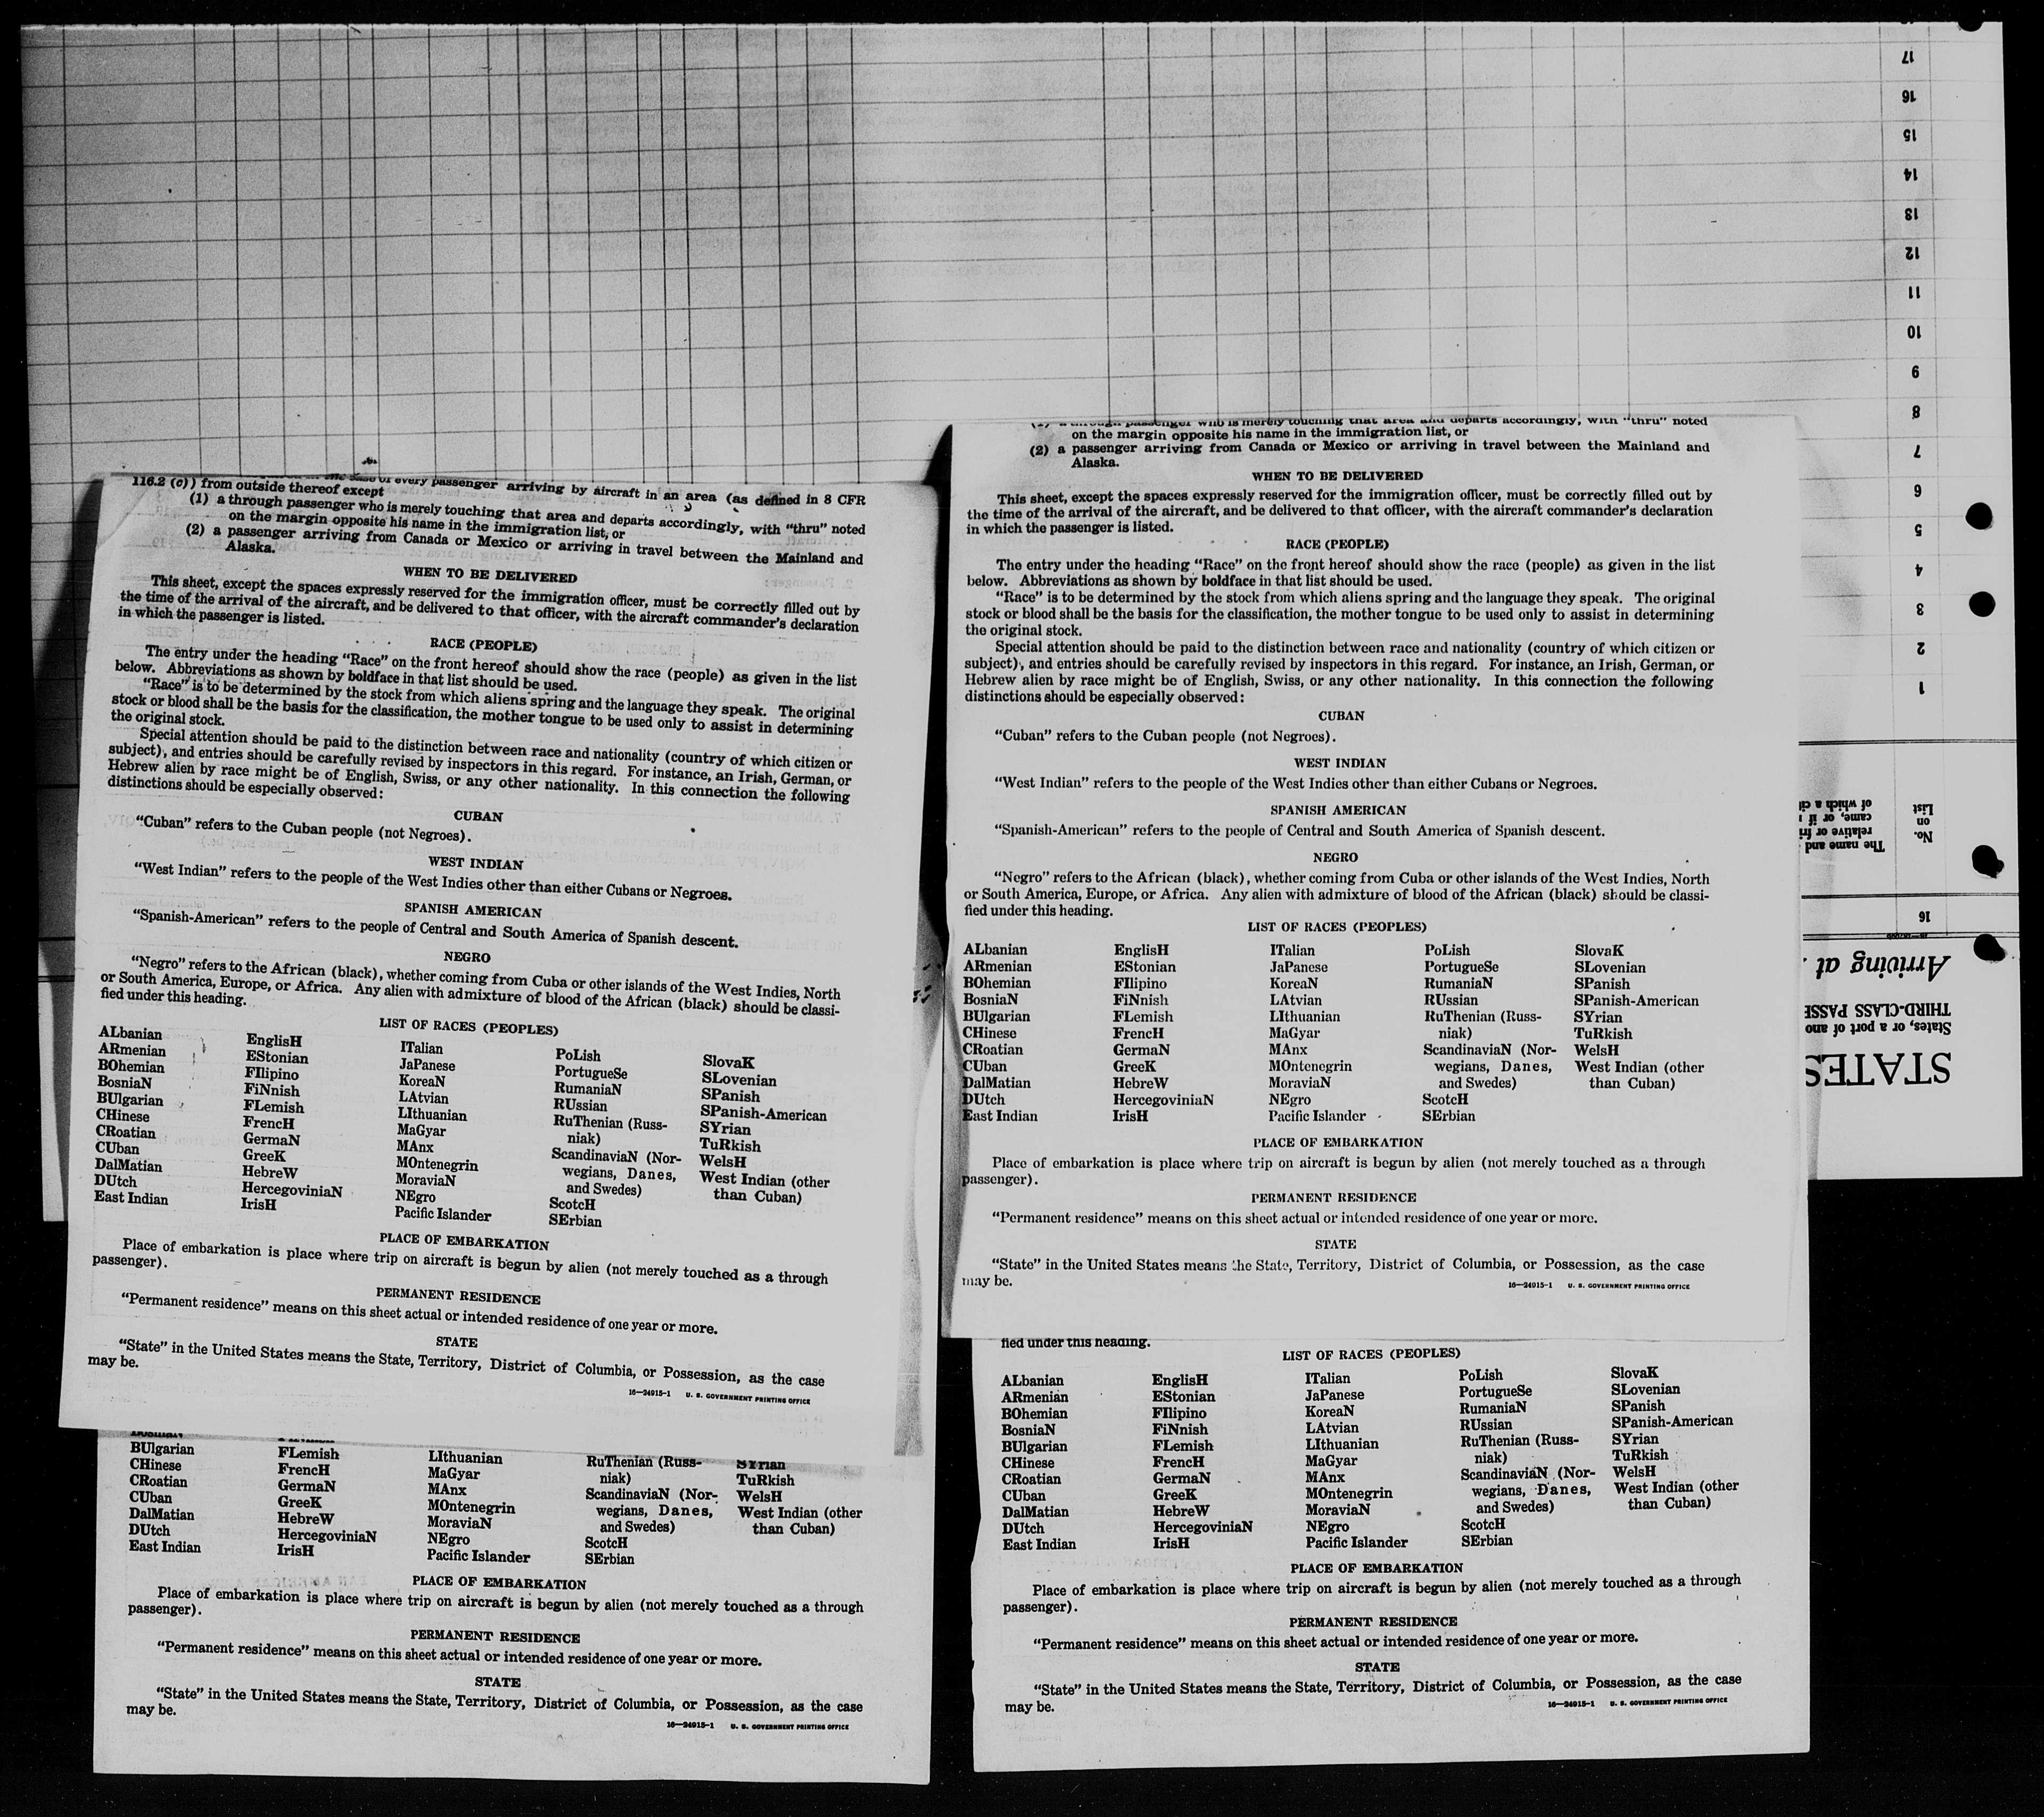 116.2 (c)) from outside thereof except
every passenger arriving by aircraft in an area (as defined in 8 CFR
(1) a through passenger who is merely touching that area and departs accordingly, with "thru" noted
on the margin opposite his name in the immigration list, or
(2) a passenger arriving from Canada or Mexico or arriving in travel between the Mainland and
Alaska.
WHEN TO BE DELIVERED
This sheet, except the spaces expressly reserved for the immigration officer, must be correctly filled out by
the time of the arrival of the aircraft, and be delivered to that officer, with the aircraft commander's declaration
in which the passenger is listed.
RACE (PEOPLE)
The entry under the heading "Race" on the front hereof should show the race (people) as given in the list
below. Abbreviations as shown by boldface in that list should be used.
"Race" is to be determined by the stock from which aliens spring and the language they speak. The original
stock or blood shall be the basis for the classification, the mother tongue to be used only to assist in determining
the original stock.
Special attention should be paid to the distinction between race and nationality (country of which citizen or
subject), and entries should be carefully revised by inspectors in this regard. For instance, an Irish, German, or
Hebrew alien by race might be of English, Swiss, or any other nationality. In this connection the following
distinctions should be especially observed:
CUBAN
"Cuban" refers to the Cuban people (not Negroes).
WEST INDIAN
"West Indian" refers to the people of the West Indies other than either Cubans or Negroes.
SPANISH AMERICAN
"Spanish-American" refers to the people of Central and South America of Spanish descent.
NEGRO
"Negro" refers to the African (black), whether coming from Cuba or other islands of the West Indies, North
or South America, Europe, or Africa. Any alien with admixture of blood of the African (black) should be classi-
fied under this heading.
LIST OF RACES (PEOPLES)
ALbanian EnglisH ITalian PoLish SlovaK
ARmenian EStonian JaPanese PortugueSe SLovenian
BOhemian FIlipino KoreaN RumaniaN SPanish
BosniaN FiNnish LAtvian RUssian SPanish-American
BUlgarian FLemish LIthuanian RuThenian (Russ- SYrian
CHinese FrencH MaGyar niak) TuRkish
CRoatian GermaN MAnx ScandinaviaN (Nor- WelsH
CUban GreeK MOntenegrin wegians, Danes, West Indian (other
DalMatian HebreW MoraviaN and Swedes) than Cuban)
DUtch HercegoviniaN NEgro ScotcH
East Indian IrisH Pacific Islander SErbian
PLACE OF EMBARKATION
Place of embarkation is place where trip on aircraft is begun by alien (not merely touched as a through
passenger).
PERMANENT RESIDENCE
"Permanent residence" means on this sheet actual or intended residence of one year or more.
STATE
"State" in the United States means the State, Territory, District of Columbia, or Possession, as the case
may be.
16—24915-1 U. S. GOVERNMENT PRINTING OFFICE
BosniaN
BUlgarian FLemish LIthuanian RuThenian (Russ- SYrian
CHinese FrencH MaGyar niak) TuRkish
CRoatian GermaN MAnx ScandinaviaN (Nor- WelsH
CUban GreeK MOntenegrin wegians, Danes, West Indian (other
DalMatian HebreW MoraviaN and Swedes) than Cuban)
DUtch HercegoviniaN NEgro ScotcH
East Indian IrisH Pacific Islander SErbian
PLACE OF EMBARKATION
Place of embarkation is place where trip on aircraft is begun by alien (not merely touched as a through
passenger).
PERMANENT RESIDENCE
"Permanent residence" means on this sheet actual or intended residence of one year or more.
STATE
"State" in the United States means the State, Territory, District of Columbia, or Possession, as the case
may be.
16—24915-1 U. S. GOVERNMENT PRINTING OFFICE
(1) a through passenger who is merely touching that area and departs accordingly, with "thru" noted
on the margin opposite his name in the immigration list, or
(2) a passenger arriving from Canada or Mexico or arriving in travel between the Mainland and
Alaska.
WHEN TO BE DELIVERED
This sheet, except the spaces expressly reserved for the immigration officer, must be correctly filled out by
the time of the arrival of the aircraft, and be delivered to that officer, with the aircraft commander's declaration
in which the passenger is listed.
RACE (PEOPLE)
The entry under the heading "Race" on the front hereof should show the race (people) as given in the list
below. Abbreviations as shown by boldface in that list should be used.
"Race" is to be determined by the stock from which aliens spring and the language they speak. The original
stock or blood shall be the basis for the classification, the mother tongue to be used only to assist in determining
the original stock.
Special attention should be paid to the distinction between race and nationality (country of which citizen or
subject), and entries should be carefully revised by inspectors in this regard. For instance, an Irish, German, or
Hebrew alien by race might be of English, Swiss, or any other nationality. In this connection the following
distinctions should be especially observed:
CUBAN
"Cuban" refers to the Cuban people (not Negroes).
WEST INDIAN
"West Indian" refers to the people of the West Indies other than either Cubans or Negroes.
SPANISH AMERICAN
"Spanish-American" refers to the people of Central and South America of Spanish descent.
NEGRO
"Negro" refers to the African (black), whether coming from Cuba or other islands of the West Indies, North
or South America, Europe, or Africa. Any alien with admixture of blood of the African (black) should be classi-
fied under this heading.
LIST OF RACES (PEOPLES)
ALbanian EnglisH ITalian PoLish SlovaK
ARmenian EStonian JaPanese PortugueSe SLovenian
BOhemian FIlipino KoreaN RumaniaN SPanish
BosniaN FiNnish LAtvian RUssian SPanish-American
BUlgarian FLemish LIthuanian RuThenian (Russ- SYrian
CHinese FrencH MaGyar niak) TuRkish
CRoatian GermaN MAnx ScandinaviaN (Nor- WelsH
CUban GreeK MOntenegrin wegians, Danes, West Indian (other
DalMatian HebreW MoraviaN and Swedes) than Cuban)
DUtch HercegoviniaN NEgro ScotcH
East Indian IrisH Pacific Islander SErbian
PLACE OF EMBARKATION
Place of embarkation is place where trip on aircraft is begun by alien (not merely touched as a through
passenger).
PERMANENT RESIDENCE
"Permanent residence" means on this sheet actual or intended residence of one year or more.
STATE
"State" in the United States means the State, Territory, District of Columbia, or Possession, as the case
may be.
16—24915-1 U. S. GOVERNMENT PRINTING OFFICE
fied under this heading.
LIST OF RACES (PEOPLES)
ALbanian EnglisH ITalian PoLish SlovaK
ARmenian EStonian JaPanese PortugueSe SLovenian
BOhemian FIlipino KoreaN RumaniaN SPanish
BosniaN FiNnish LAtvian RUssian SPanish-American
BUlgarian FLemish LIthuanian RuThenian (Russ- SYrian
CHinese FrencH MaGyar niak) TuRkish
CRoatian GermaN MAnx ScandinaviaN (Nor- WelsH
CUban GreeK MOntenegrin wegians, Danes, West Indian (other
DalMatian HebreW MoraviaN and Swedes) than Cuban)
DUtch HercegoviniaN NEgro ScotcH
East Indian IrisH Pacific Islander SErbian
PLACE OF EMBARKATION
Place of embarkation is place where trip on aircraft is begun by alien (not merely touched as a through
passenger).
PERMANENT RESIDENCE
"Permanent residence" means on this sheet actual or intended residence of one year or more.
STATE
"State" in the United States means the State, Territory, District of Columbia, or Possession, as the case
may be.
16—24915-1 U. S. GOVERNMENT PRINTING OFFICE
STATES
States, or a port of ano
THIRD-CLASS PASSE
Arriving at
16
No.
on
List
The name and
relative or fri
came, or if
of which a ci
1
2
3
4
5
6
7
8
9
10
11
12
13
14
15
16
17